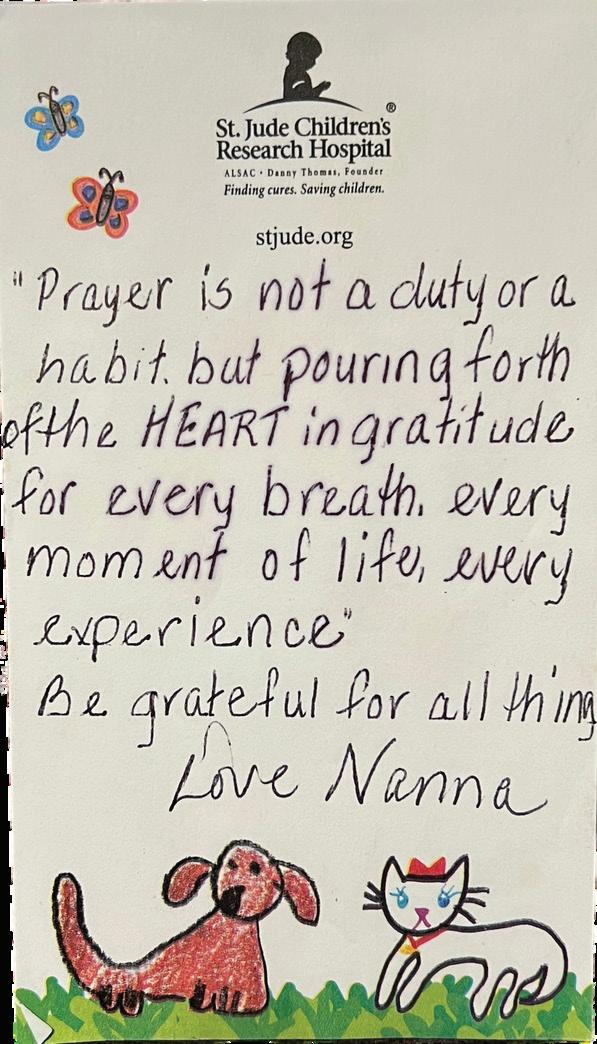 St. Jude Children's
Research Hospital
ALSAC • Danny Thomas, Founder
Finding cures. Saving children.
stjude.org
"Prayer is not a duty or a
habit. but pouring forth
of the HEART in gratitude
for every breath, every
moment of life, every
experience"
Be grateful for all thing
Love Nanna